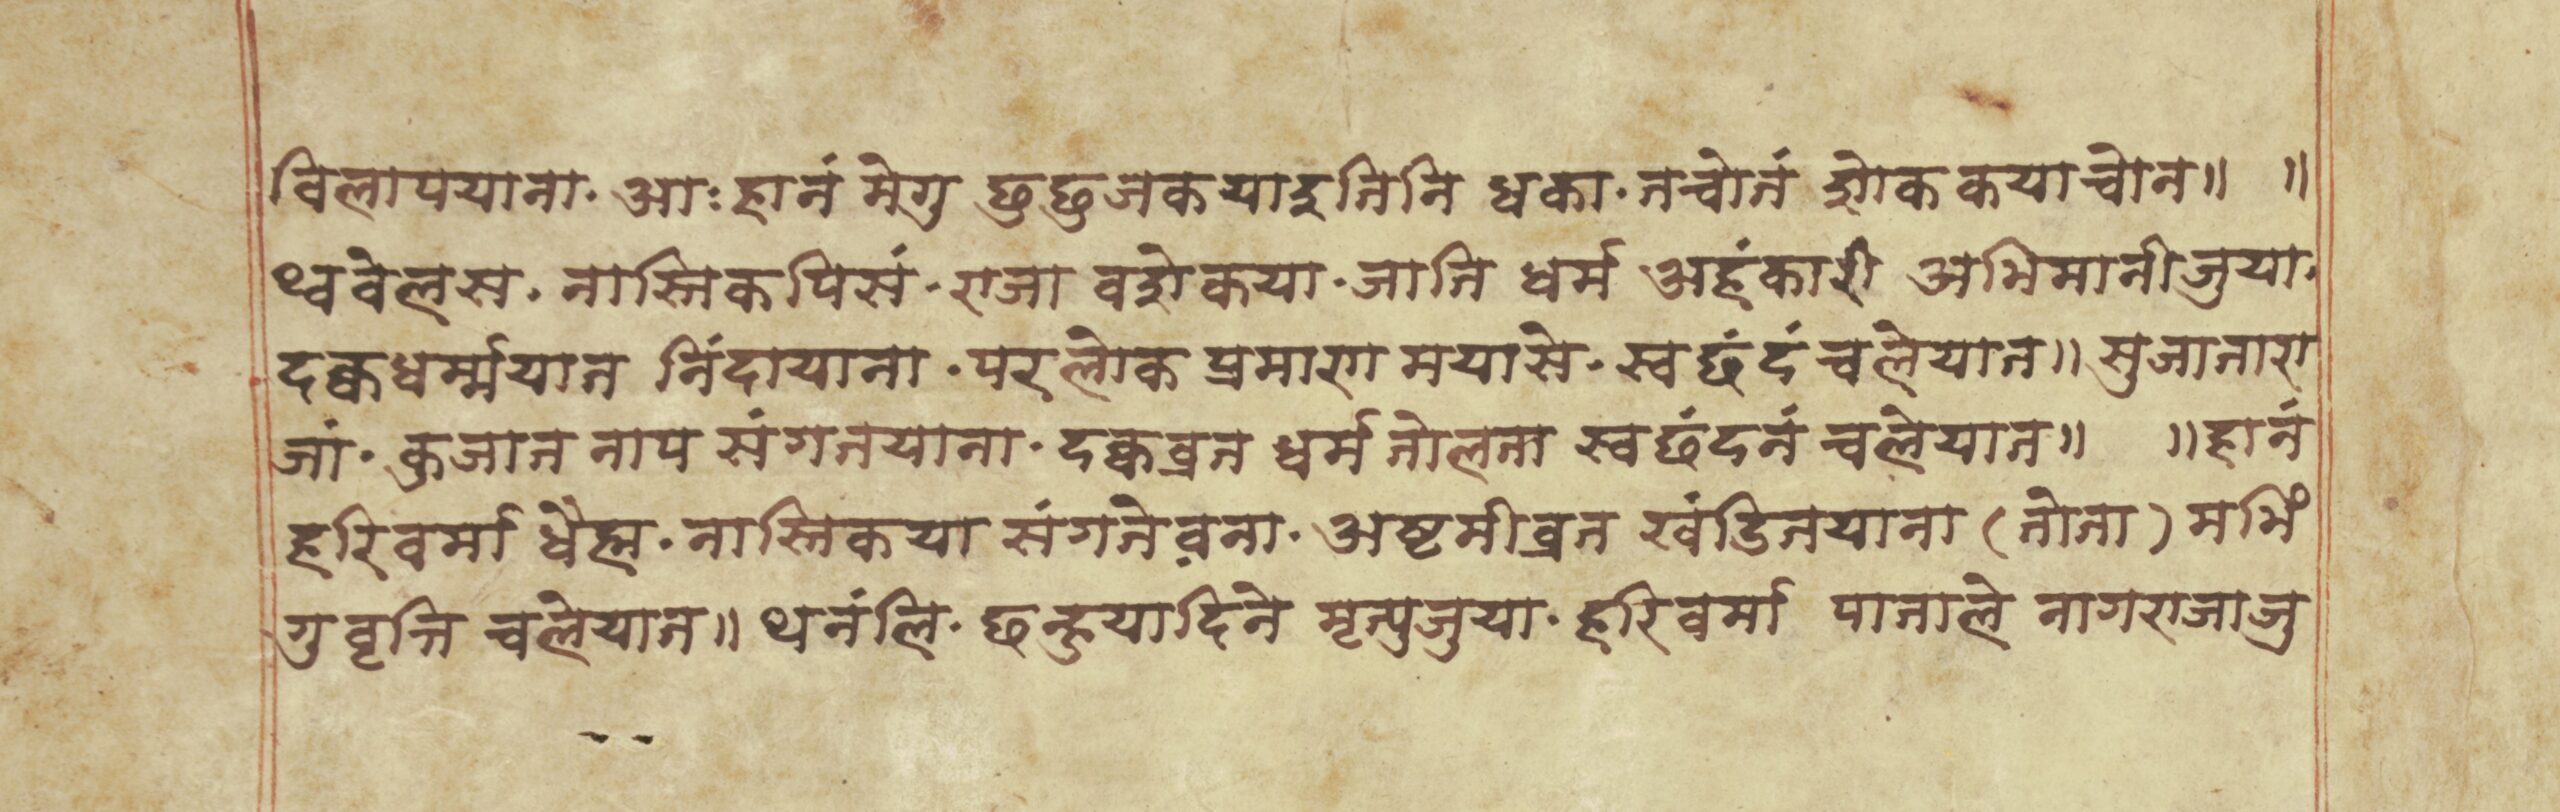 विलापयाना· आः हानं मेगु छुछुजकयाइतिनि धका· नचोनं शोककयाचोन॥ ॥
थ्ववेलस· नास्तिकपिसं· राजा वशेकया· जाति धर्म अहंकारी अभिमानीजुया·
दक्वधर्म्मयात निंदायाना· परलोक प्रमाण मयासे· स्वछंदं चलेयात॥ सुजातारा
जां· कुजात नाप संगतयाना· दक्वव्रत धर्म तोलता स्वछंदनं चलेयात॥ ॥हानं
हरिवर्मा धैह्म· नास्तिकया संगतेवना· अष्टमीव्रत खंडितयाना (तोता) मभिं
गु वृत्ति चलेयात॥ थनंलि· छन्हुयादिने मृत्युजुया· हरिवर्मा पाताले नागराजाजु